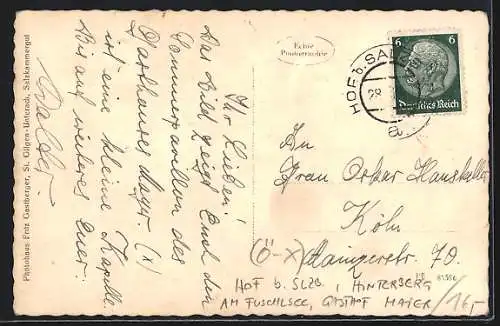 Photohaus Fritz Gastberger, St. Gilgen-Unterach, Salzkammergut
Echte
Photographie
6 6
Deutsches Reich
HOF b. SALZBURG
28
a
Ihr Lieben!
Das Bild zeigt Euch den
Sommerpavillon des
Gasthauses Mayr. (x)
ist eine kleine Kapelle.
Bis auf weiteres Euer:
Walter
An
Frau Oskar
Köln
Mainzerstr. 70.
(Ö-X)
HOF b. SLZB., HINTERSEE
AM FUSCHLSEE, GASTHOF MAIER
16,-